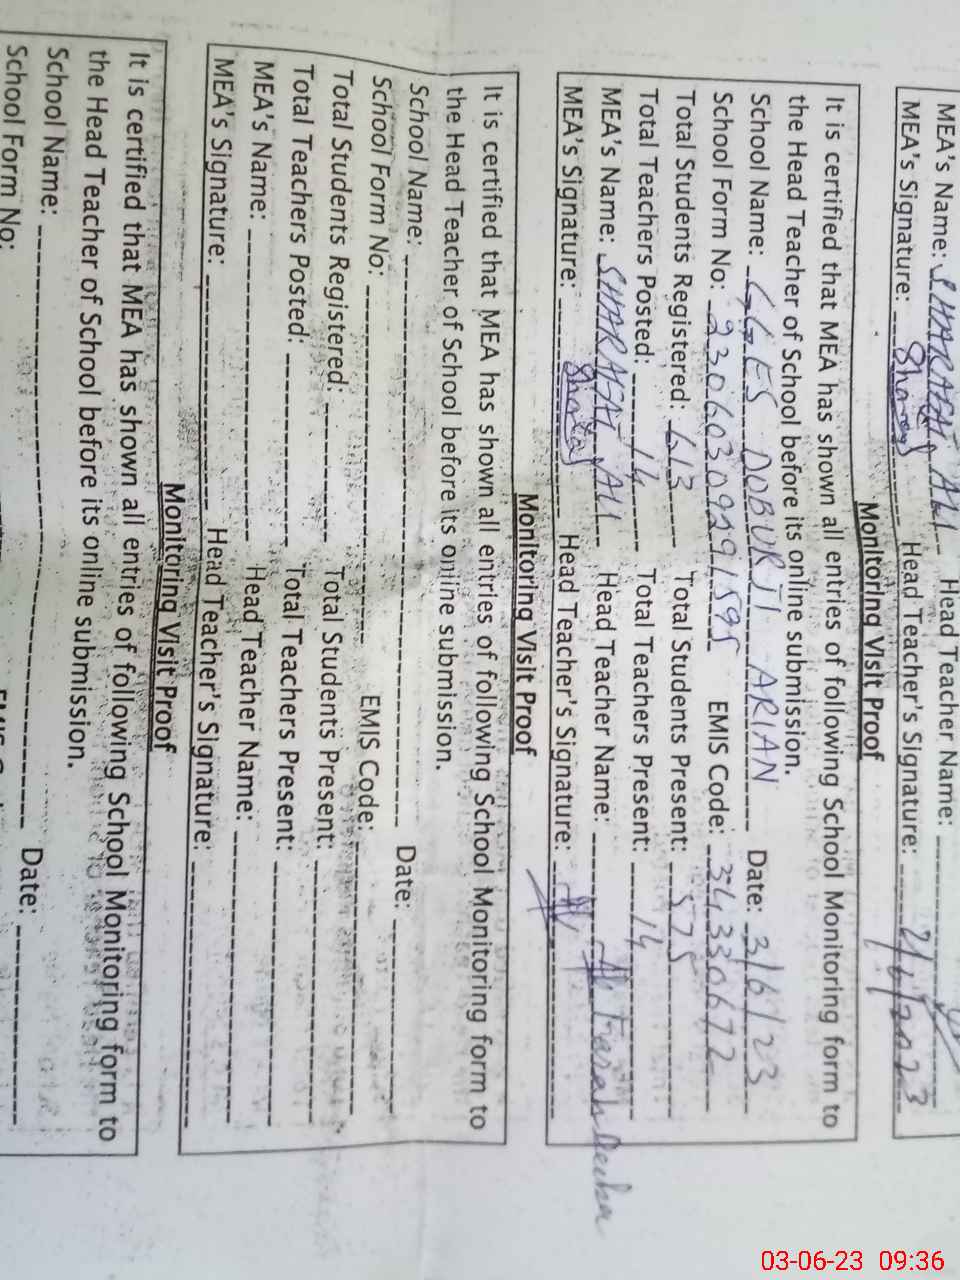 MEA's Name: SHARAFAT ALI Head Teacher Name:
MEA's Signature: Sharaf Head Teacher's Signature: 2/6/2023
Monitoring Visit Proof
It is certified that MEA has shown all entries of following School Monitoring form to
the Head Teacher of School before its online submission.
School Name: GGES DOBURJI ARIAN Date: 3/6/23
School Form No: EMIS Code: 34330672
Total Students Registered: 613 Total Students Present: 575
Total Teachers Posted: 14 Total Teachers Present: 14
MEA's Name: SHARAFAT ALI Head Teacher Name: Farah
MEA's Signature: Sharaf Head Teacher's Signature:
Monitoring Visit Proof
It is certified that MEA has shown all entries of following School Monitoring form to
the Head Teacher of School before its online submission.
School Name: Date:
School Form No: EMIS Code:
Total Students Registered: Total Students Present:
Total Teachers Posted: Total Teachers Present:
MEA's Name: Head Teacher Name:
MEA's Signature: Head Teacher's Signature:
Monitoring Visit Proof
It is certified that MEA has shown all entries of following School Monitoring form to
the Head Teacher of School before its online submission.
School Name: Date:
School Form No:
03-06-23 09:36